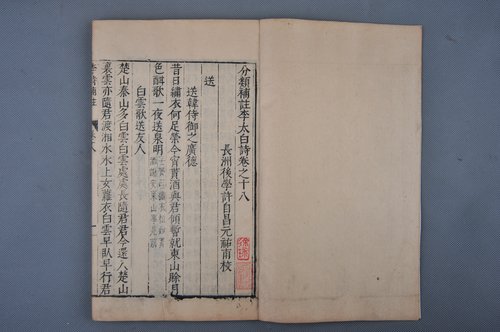 分類補註李太白詩卷之十八
長洲後學許自昌玄祐甫校
送
送韓侍御之廣德
昔日繡衣何足榮今宵貰酒與君傾暫就東山賒月
色酣歌一夜送泉明
白雲歌送友人
楚山秦山多白雲白雲處處長隨君君今還入楚山
裏雲亦隨君渡湘水水上女蘿衣白雲早臥早行君